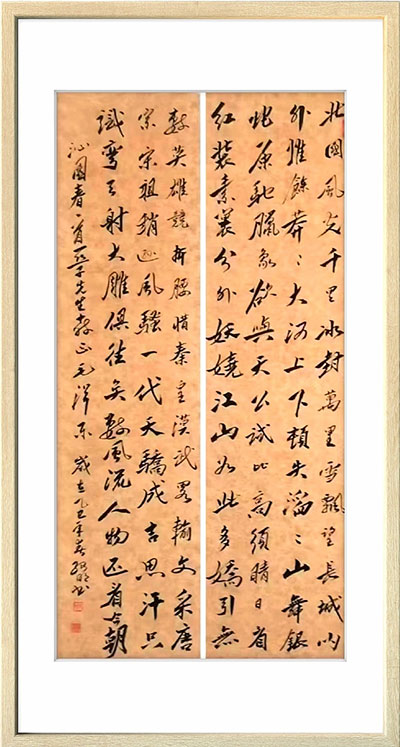 北國風光千里冰封萬里雪飄望長城内
外惟餘莽〻大河上下頓失滔〻山舞銀
蛇原馳臘象欲與天公試比高須晴日看
紅裝素裹分外妖嬈江山如此多嬌引無
數英雄競折腰惜秦皇漢武畧輸文采唐
宗宋祖稍遜風騷一代天驕成吉思汗只
識彎弓射大雕俱往矣數風流人物还看今朝
沁園春一首亞子先生教正毛澤东歲在乙巳年春书